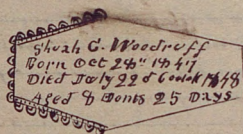 Shuah C. Woodruff
Born Oct 28th 1847
Died July 22d 1848
Aged 8 Monts 25 Days